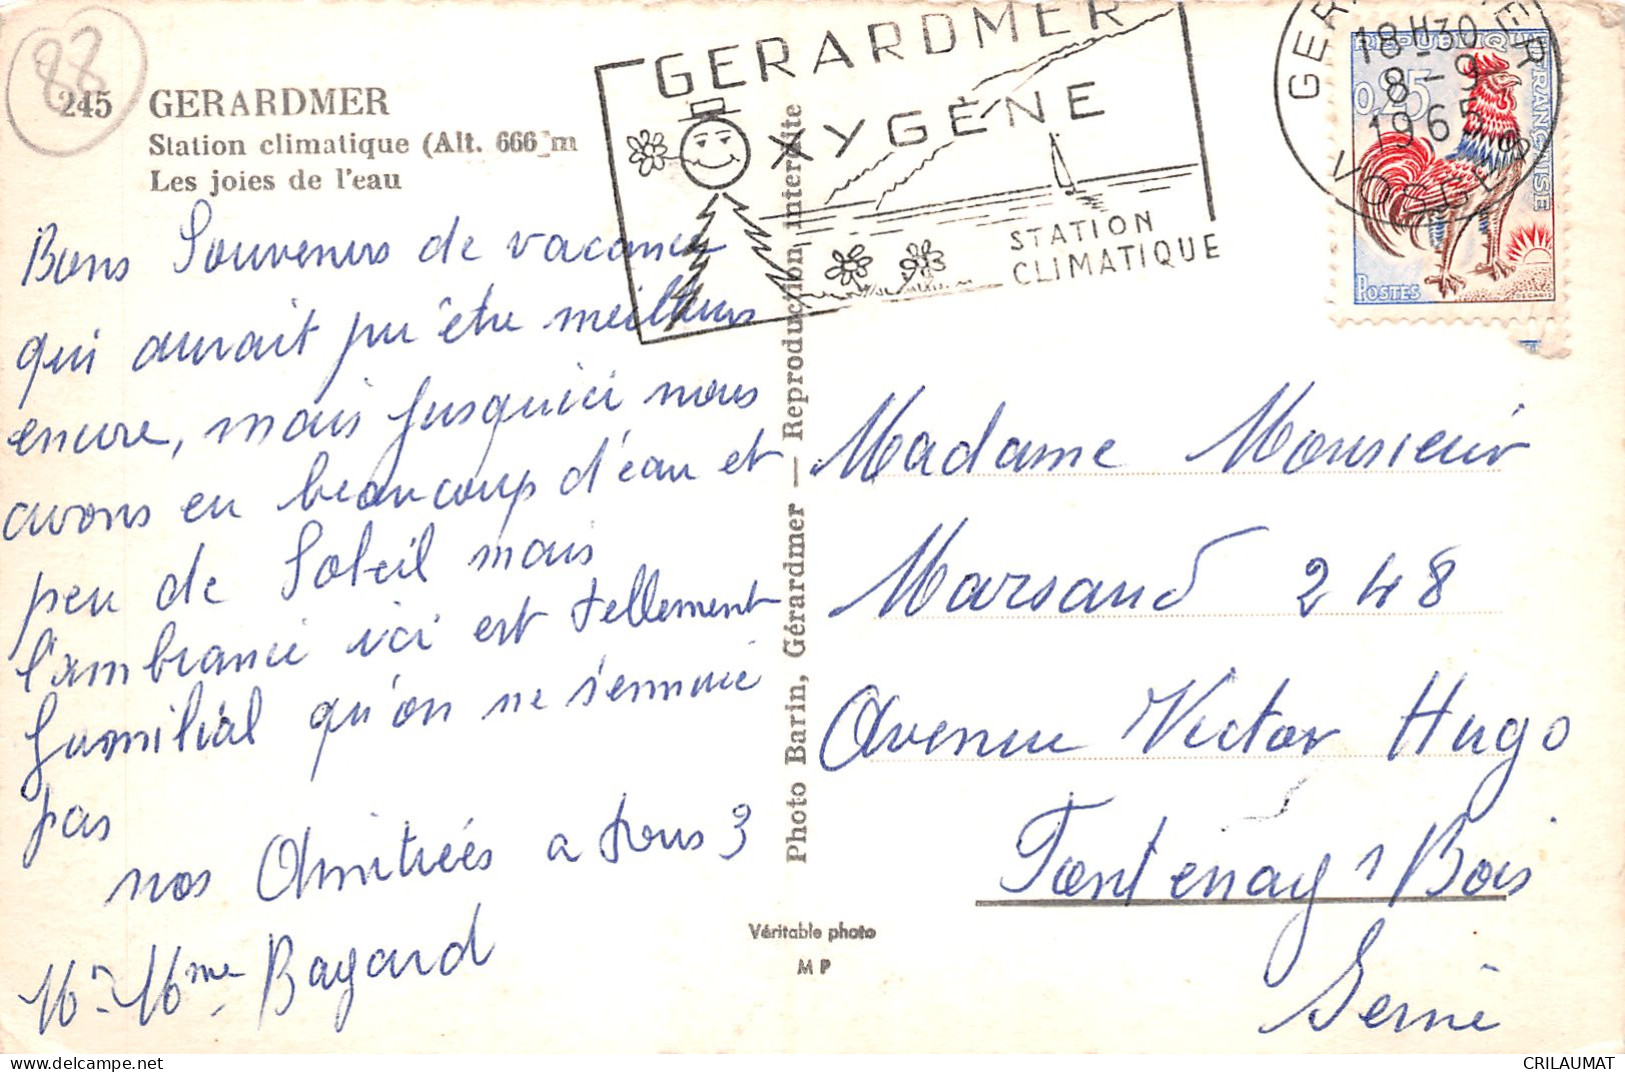 88
245 GERARDMER
Station climatique (Alt. 666 m
Les joies de l'eau
GERARDMER
OXYGÈNE
STATION
CLIMATIQUE
GERARDMER
18 H 30
8 - 9
1965
VOSGES
REPUBLIQUE FRANÇAISE
0,25
POSTES
DECARIS
Bons Souvenirs de vacance
qui aurait pu être meilleurs
encore, mais jusquici nous
avons eu beaucoup d'eau et
peu de Soleil mais
l'ambiance ici est tellement
familial qu'on ne s'ennuie
pas
nos Amitiées a tous 3
Mr Mme Bayard
Photo Barin, Gérardmer — Reproduction interdite
Véritable photo
M P
Madame Monsieur
Marsaud 248
Avenue Victor Hugo
Fontenay s Bois
Seine
CRILAUMAT